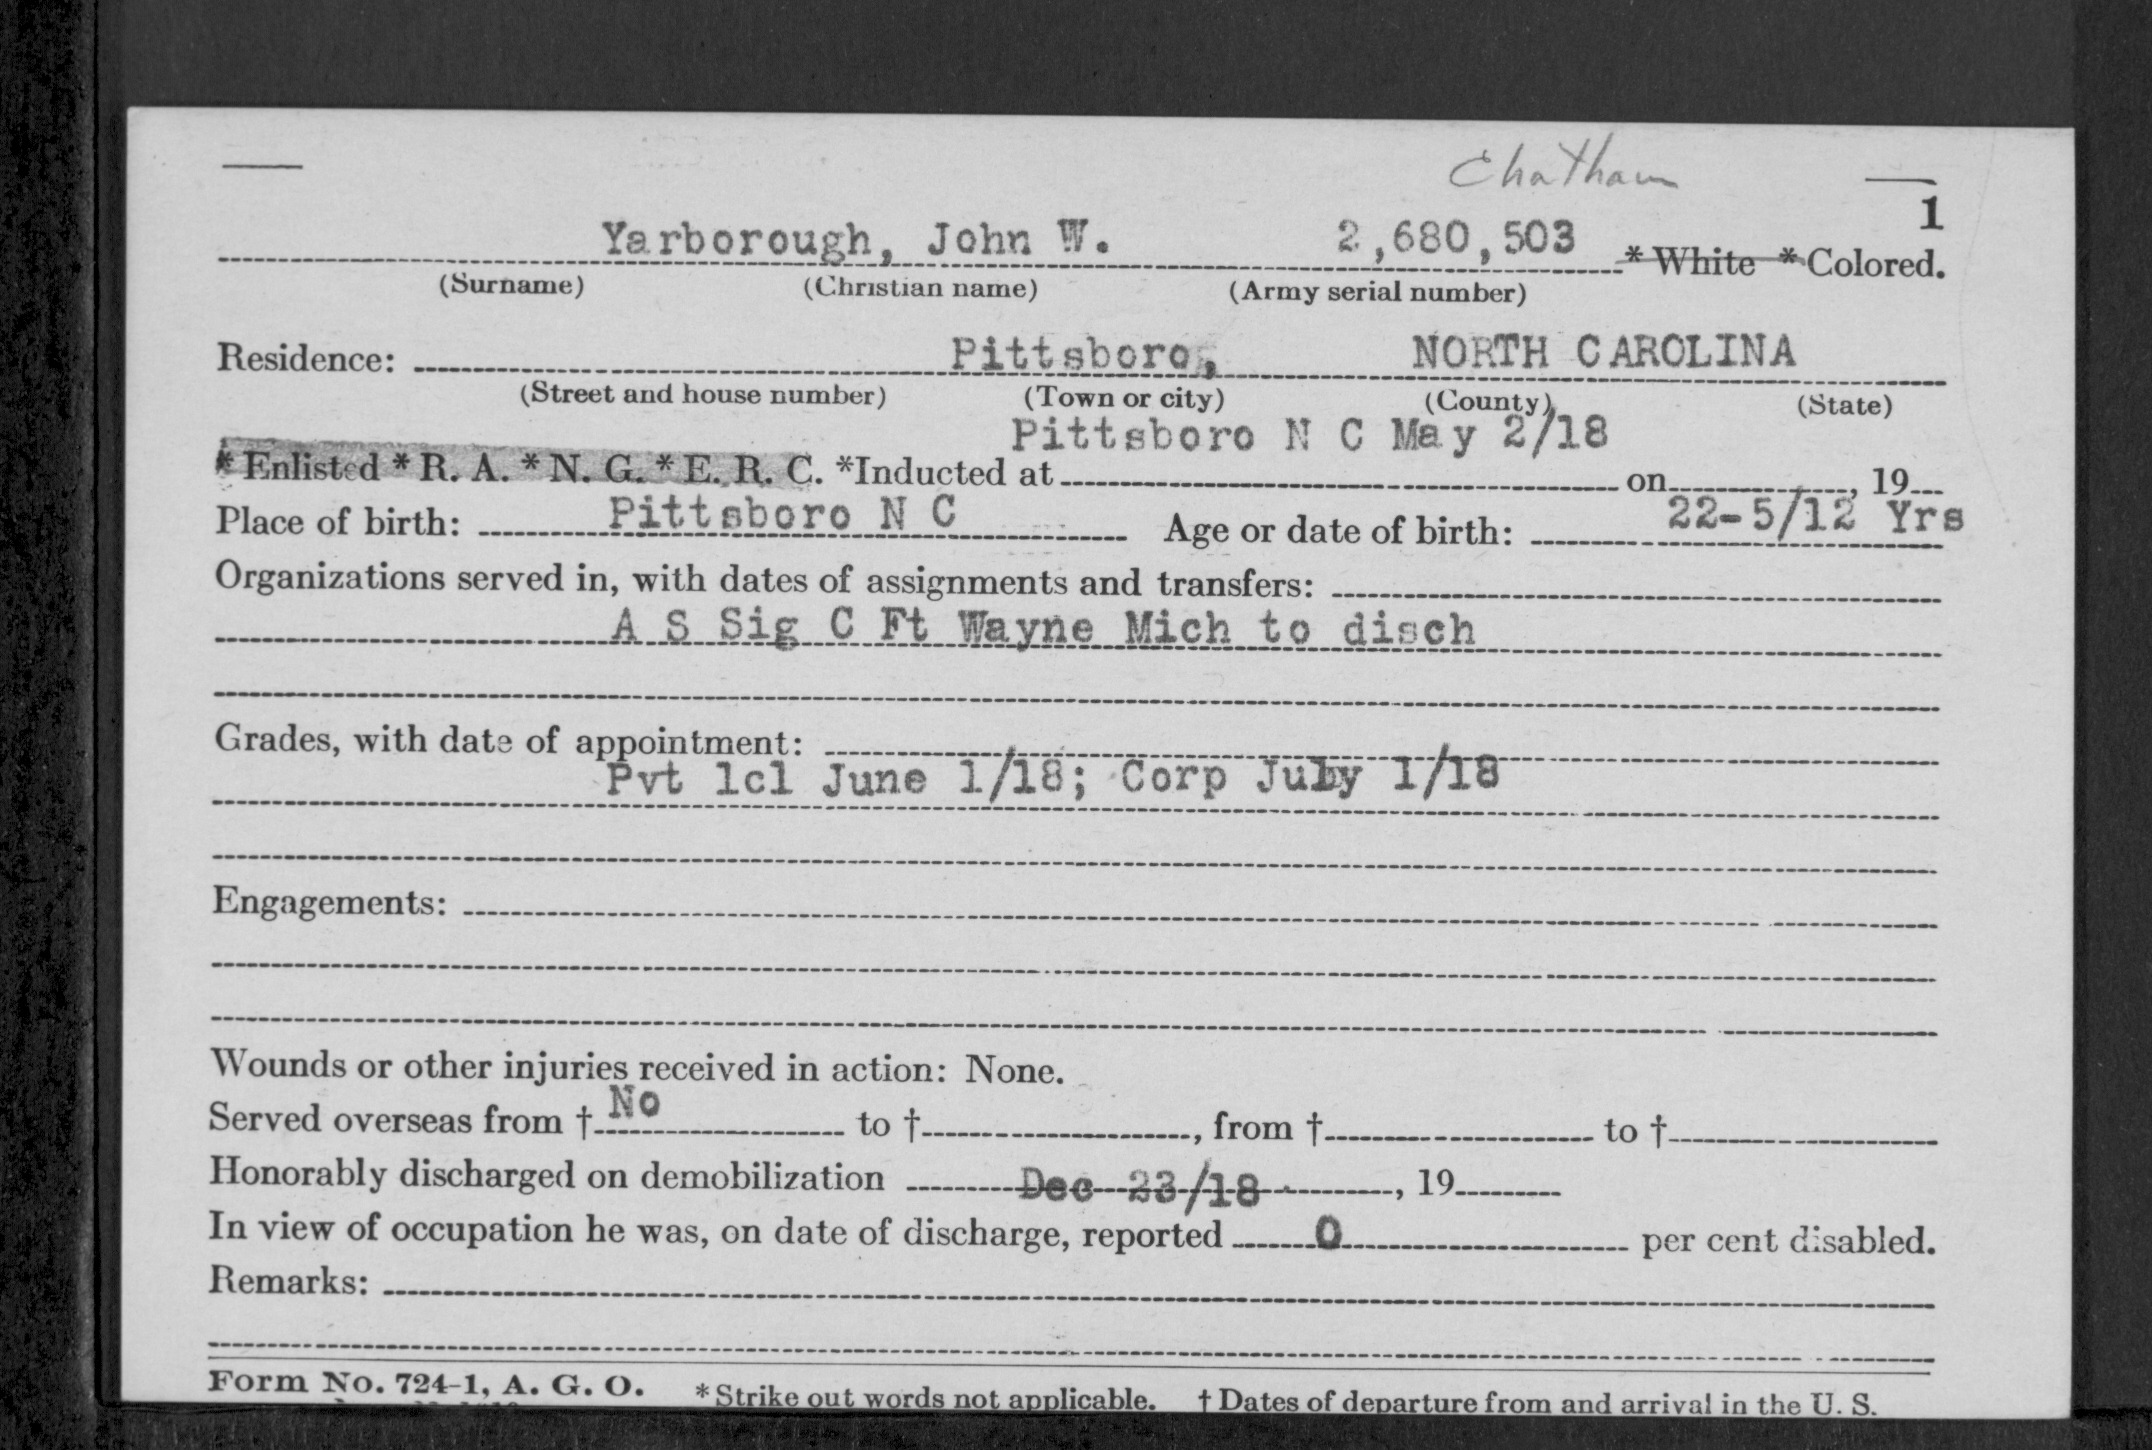 Chatham
1
Yarborough, John W. 2,680,503 * White * Colored.
(Surname) (Christian name) (Army serial number)
Residence: Pittsboro, NORTH CAROLINA
(Street and house number) (Town or city) (County) (State)
Pittsboro N C May 2/18
* Enlisted * R. A. * N. G. * E. R. C. *Inducted at on , 19
Place of birth: Pittsboro N C Age or date of birth: 22-5/12 Yrs
Organizations served in, with dates of assignments and transfers:
A S Sig C Ft Wayne Mich to disch
Grades, with date of appointment:
Pvt 1cl June 1/18; Corp July 1/18
Engagements:
Wounds or other injuries received in action: None.
Served overseas from † No to † , from † to †
Honorably discharged on demobilization Dec 23/18 , 19
In view of occupation he was, on date of discharge, reported 0 per cent disabled.
Remarks:
Form No. 724-1, A. G. O. * Strike out words not applicable. † Dates of departure from and arrival in the U. S.